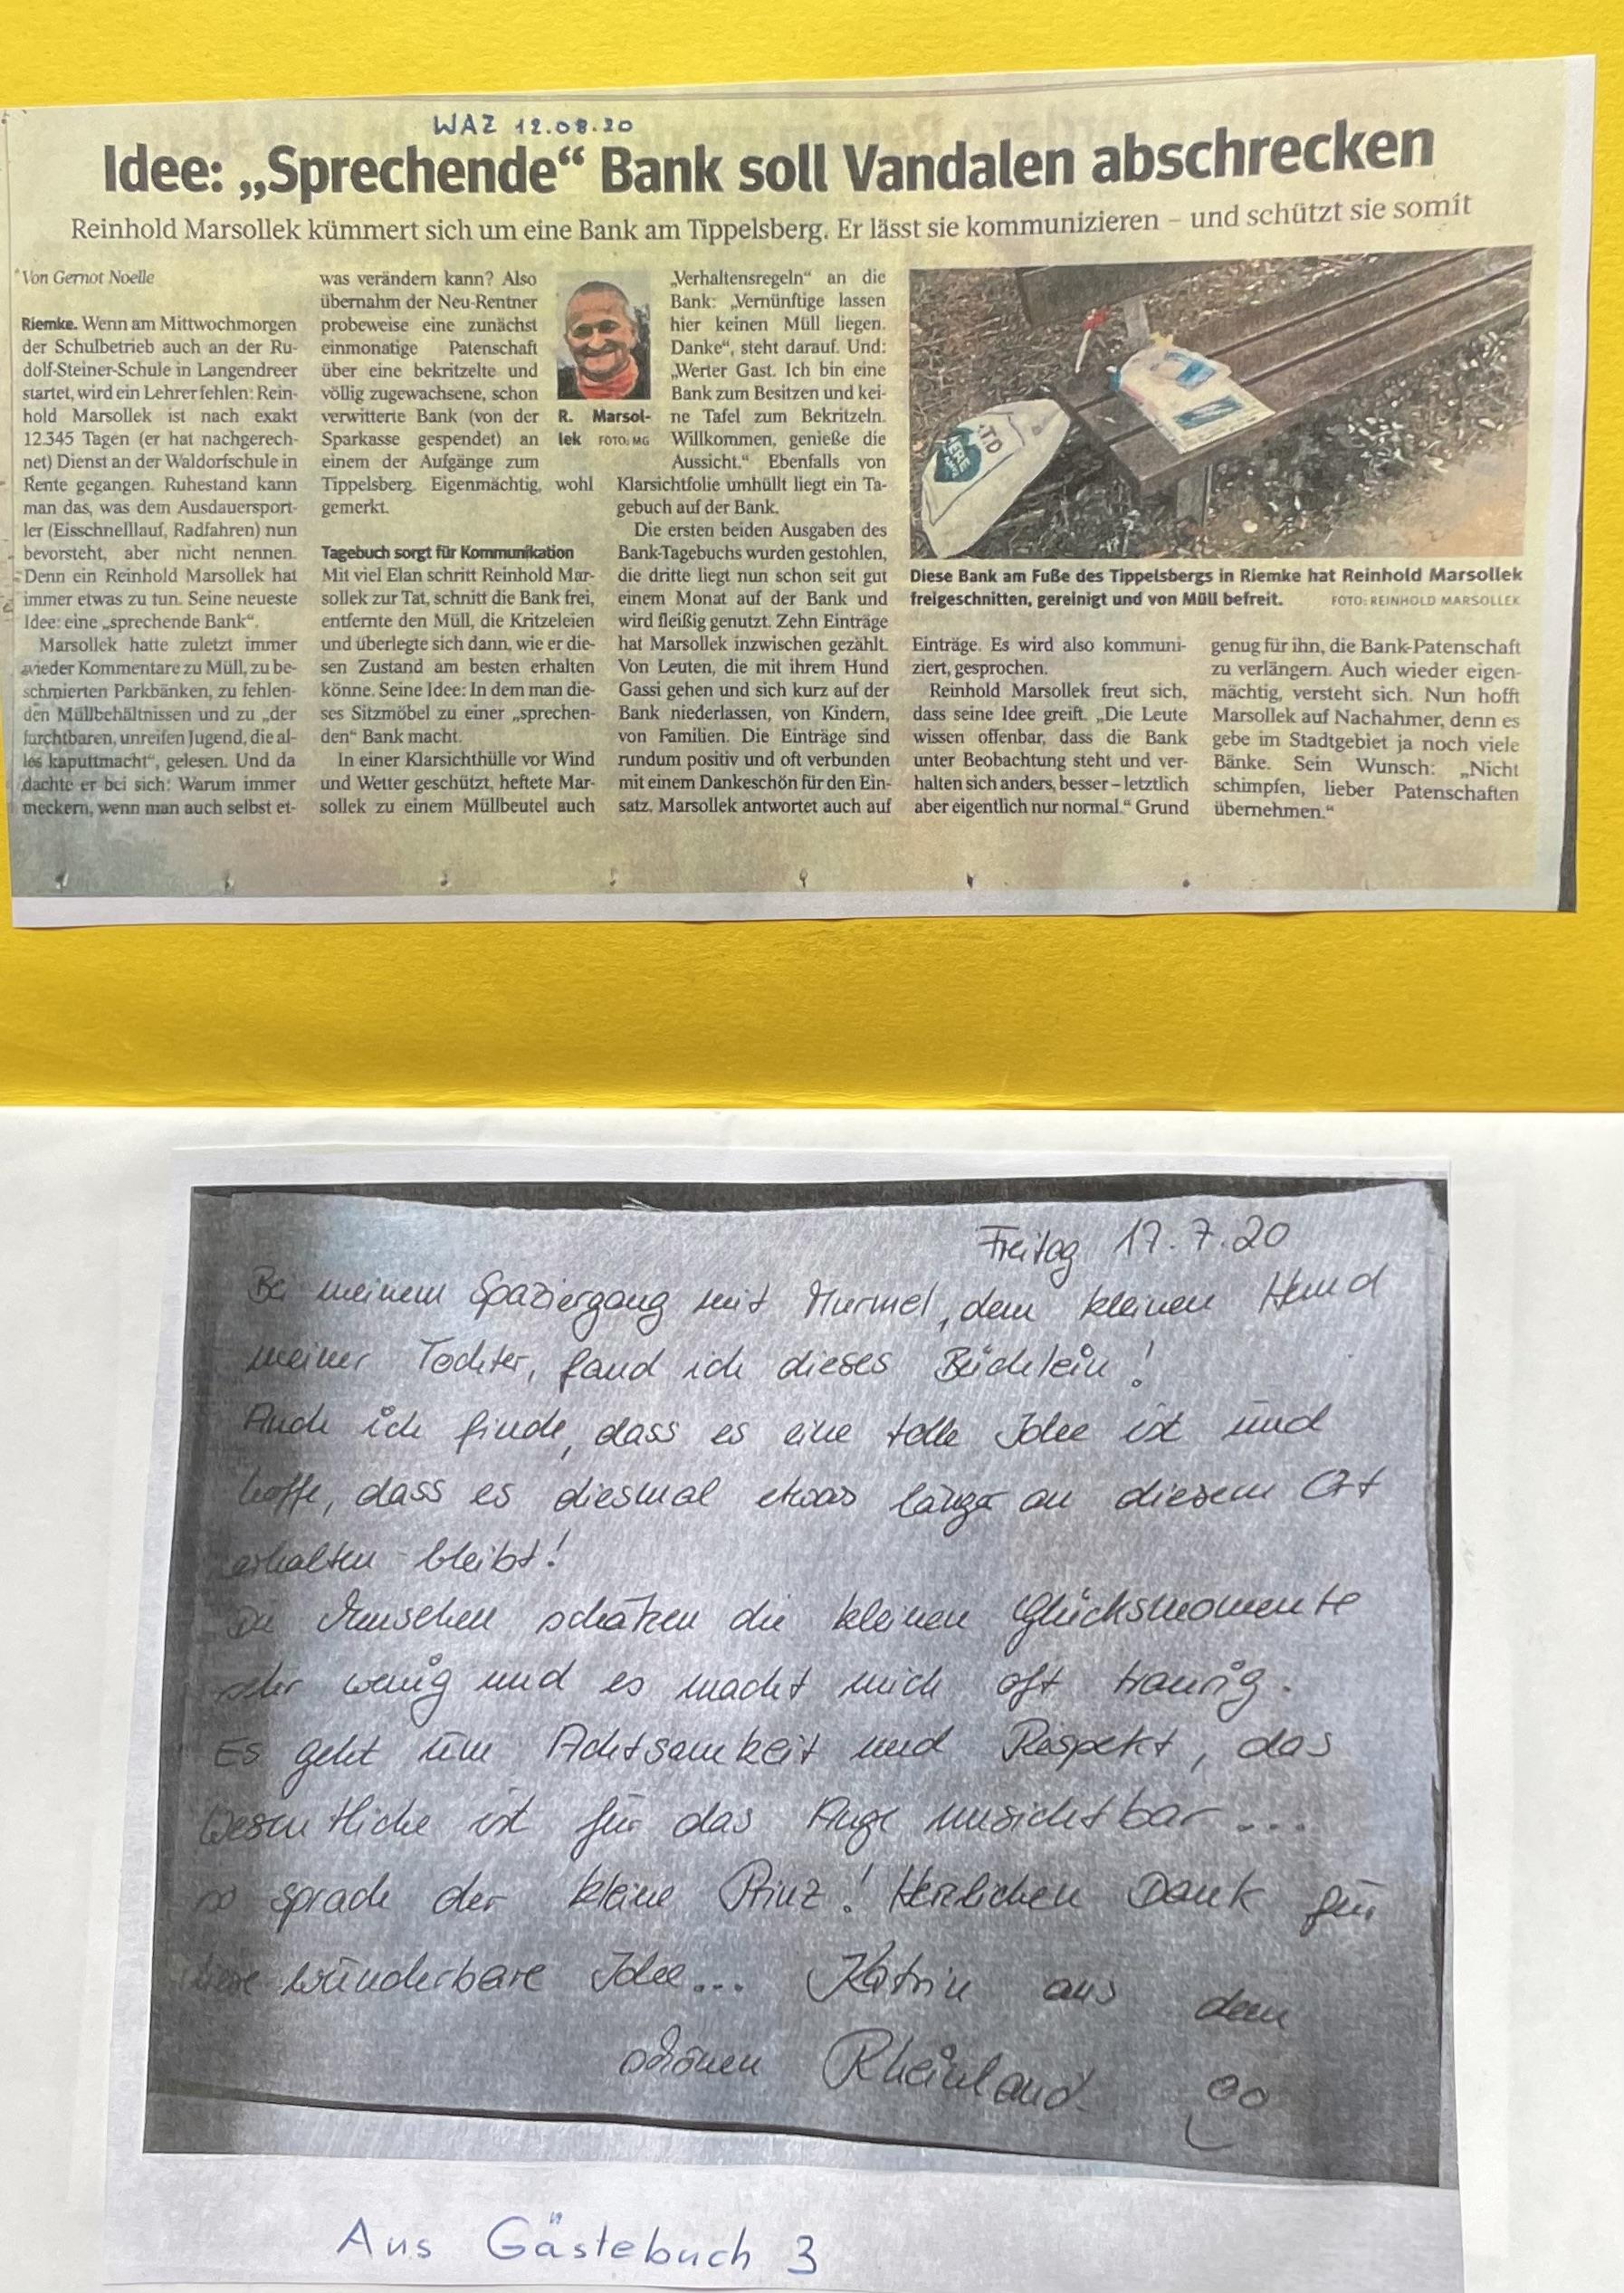 WAZ 12.08.20
Idee: „Sprechende“ Bank soll Vandalen abschrecken
Reinhold Marsollek kümmert sich um eine Bank am Tippelsberg. Er lässt sie kommunizieren – und schützt sie somit
Von Gernot Noelle
Riemke. Wenn am Mittwochmorgen
der Schulbetrieb auch an der Ru-
dolf-Steiner-Schule in Langendreer
startet, wird ein Lehrer fehlen: Rein-
hold Marsollek ist nach exakt
12.345 Tagen (er hat nachgerech-
net) Dienst an der Waldorfschule in
Rente gegangen. Ruhestand kann
man das, was dem Ausdauersport-
ler (Eisschnelllauf, Radfahren) nun
bevorsteht, aber nicht nennen.
Denn ein Reinhold Marsollek hat
immer etwas zu tun. Seine neueste
Idee: eine „sprechende Bank“.
Marsollek hatte zuletzt immer
wieder Kommentare zu Müll, zu be-
schmierten Parkbänken, zu fehlen-
den Müllbehältnissen und zu „der
furchtbaren, unreifen Jugend, die al-
les kaputtmacht“, gelesen. Und da
dachte er bei sich: Warum immer
meckern, wenn man auch selbst et-
was verändern kann? Also
übernahm der Neu-Rentner
probeweise eine zunächst
einmonatige Patenschaft
über eine bekritzelte und
völlig zugewachsene, schon
verwitterte Bank (von der
Sparkasse gespendet) an
einem der Aufgänge zum
Tippelsberg. Eigenmächtig, wohl
gemerkt.
Tagebuch sorgt für Kommunikation
Mit viel Elan schritt Reinhold Mar-
sollek zur Tat, schnitt die Bank frei,
entfernte den Müll, die Kritzeleien
und überlegte sich dann, wie er die-
sen Zustand am besten erhalten
könne. Seine Idee: In dem man die-
ses Sitzmöbel zu einer „sprechen-
den“ Bank macht.
In einer Klarsichthülle vor Wind
und Wetter geschützt, heftete Mar-
sollek zu einem Müllbeutel auch
R. Marsol-
lek FOTO: MG
„Verhaltensregeln“ an die
Bank: „Vernünftige lassen
hier keinen Müll liegen.
Danke“, steht darauf. Und:
„Werter Gast. Ich bin eine
Bank zum Besitzen und kei-
ne Tafel zum Bekritzeln.
Willkommen, genieße die
Aussicht.“ Ebenfalls von
Klarsichtfolie umhüllt liegt ein Ta-
gebuch auf der Bank.
Die ersten beiden Ausgaben des
Bank-Tagebuchs wurden gestohlen,
die dritte liegt nun schon seit gut
einem Monat auf der Bank und
wird fleißig genutzt. Zehn Einträge
hat Marsollek inzwischen gezählt.
Von Leuten, die mit ihrem Hund
Gassi gehen und sich kurz auf der
Bank niederlassen, von Kindern,
von Familien. Die Einträge sind
rundum positiv und oft verbunden
mit einem Dankeschön für den Ein-
satz. Marsollek antwortet auch auf
Diese Bank am Fuße des Tippelsbergs in Riemke hat Reinhold Marsollek
freigeschnitten, gereinigt und von Müll befreit. FOTO: REINHOLD MARSOLLEK
Einträge. Es wird also kommuni-
ziert, gesprochen.
Reinhold Marsollek freut sich,
dass seine Idee greift. „Die Leute
wissen offenbar, dass die Bank
unter Beobachtung steht und ver-
halten sich anders, besser – letztlich
aber eigentlich nur normal.“ Grund
genug für ihn, die Bank-Patenschaft
zu verlängern. Auch wieder eigen-
mächtig, versteht sich. Nun hofft
Marsollek auf Nachahmer, denn es
gebe im Stadtgebiet ja noch viele
Bänke. Sein Wunsch: „Nicht
schimpfen, lieber Patenschaften
übernehmen.“
Freitag 17.7.20
Bei meinem Spaziergang mit Murmel, dem kleinen Hund
meiner Tochter, fand ich dieses Büchlein!
Auch ich finde, dass es eine tolle Idee ist und
hoffe, dass es diesmal etwas länger an diesem Ort
erhalten bleibt!
Die Menschen schätzen die kleinen Glücksmomente
sehr wenig und es macht mich oft traurig.
Es geht um Achtsamkeit und Respekt, das
Wesentliche ist für das Auge unsichtbar...
so sprach der kleine Prinz! Herzlichen Dank für
diese wunderbare Idee... Katrin aus dem
schönen Rheinland
Aus Gästebuch 3